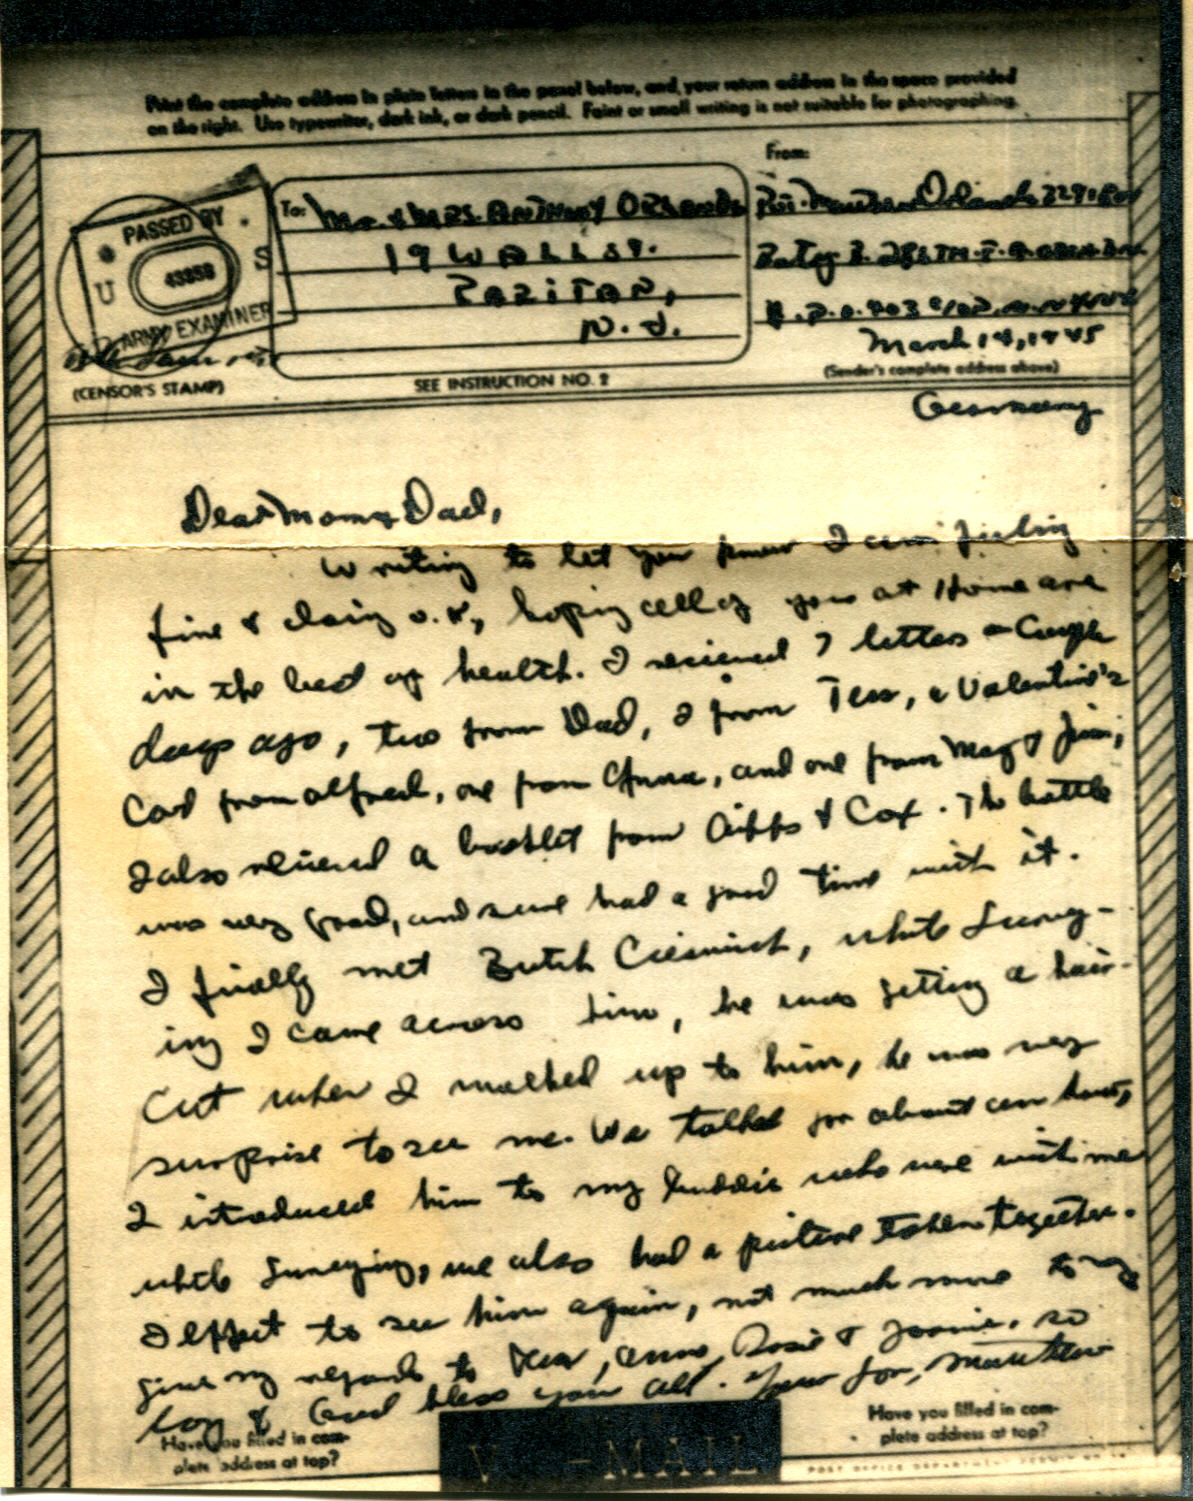 Print the complete address in plain letters in the panel below, and your return address in the space provided
on the right. Use typewriter, dark ink, or dark pencil. Faint or small writing is not suitable for photographing.
From:
PASSED BY
U S
43353
ARMY EXAMINER
(CENSOR'S STAMP)
To: Mr. & MRS. ANTHONY ORLANDO
19 WALL ST.
RARITAN,
N. J.
SEE INSTRUCTION NO. 2
Pvt. Matthew Orlando
Batry B. 281TH. F. A. OBSN. BN.
A. P. O. 403 c/o P. M. N.Y. N.Y.
March 14, 1945
(Sender's complete address above)
Germany
Dear Mom & Dad,
Writing to let you know I am feeling
fine & doing o.k., hoping all of you at Home are
in the best of health. I recieved 7 letters a Couple
days ago, two from Dad, 2 from Tess, a Valentine's
Card from Alfred, one from Anna, and one from May & Jim,
I also recieved a booklet from Gibbs & Cox. The bottle
was very good, and sure had a good time with it.
I finally met Butch, while Survey-
ing I came across him, he was getting a hair-
Cut when I walked up to him, he was very
surprise to see me. We talked for about an hour,
I introduced him to my buddie who were with me
while Surveying, we also had a picture taken together.
I expect to see him again, not much more to say
give my regards to Tess, Anna, Rosie & Joanie. so
long & God bless you all. Your Son, Matthew
Have you filled in com-
plete address at top?
V - MAIL
Have you filled in com-
plete address at top?